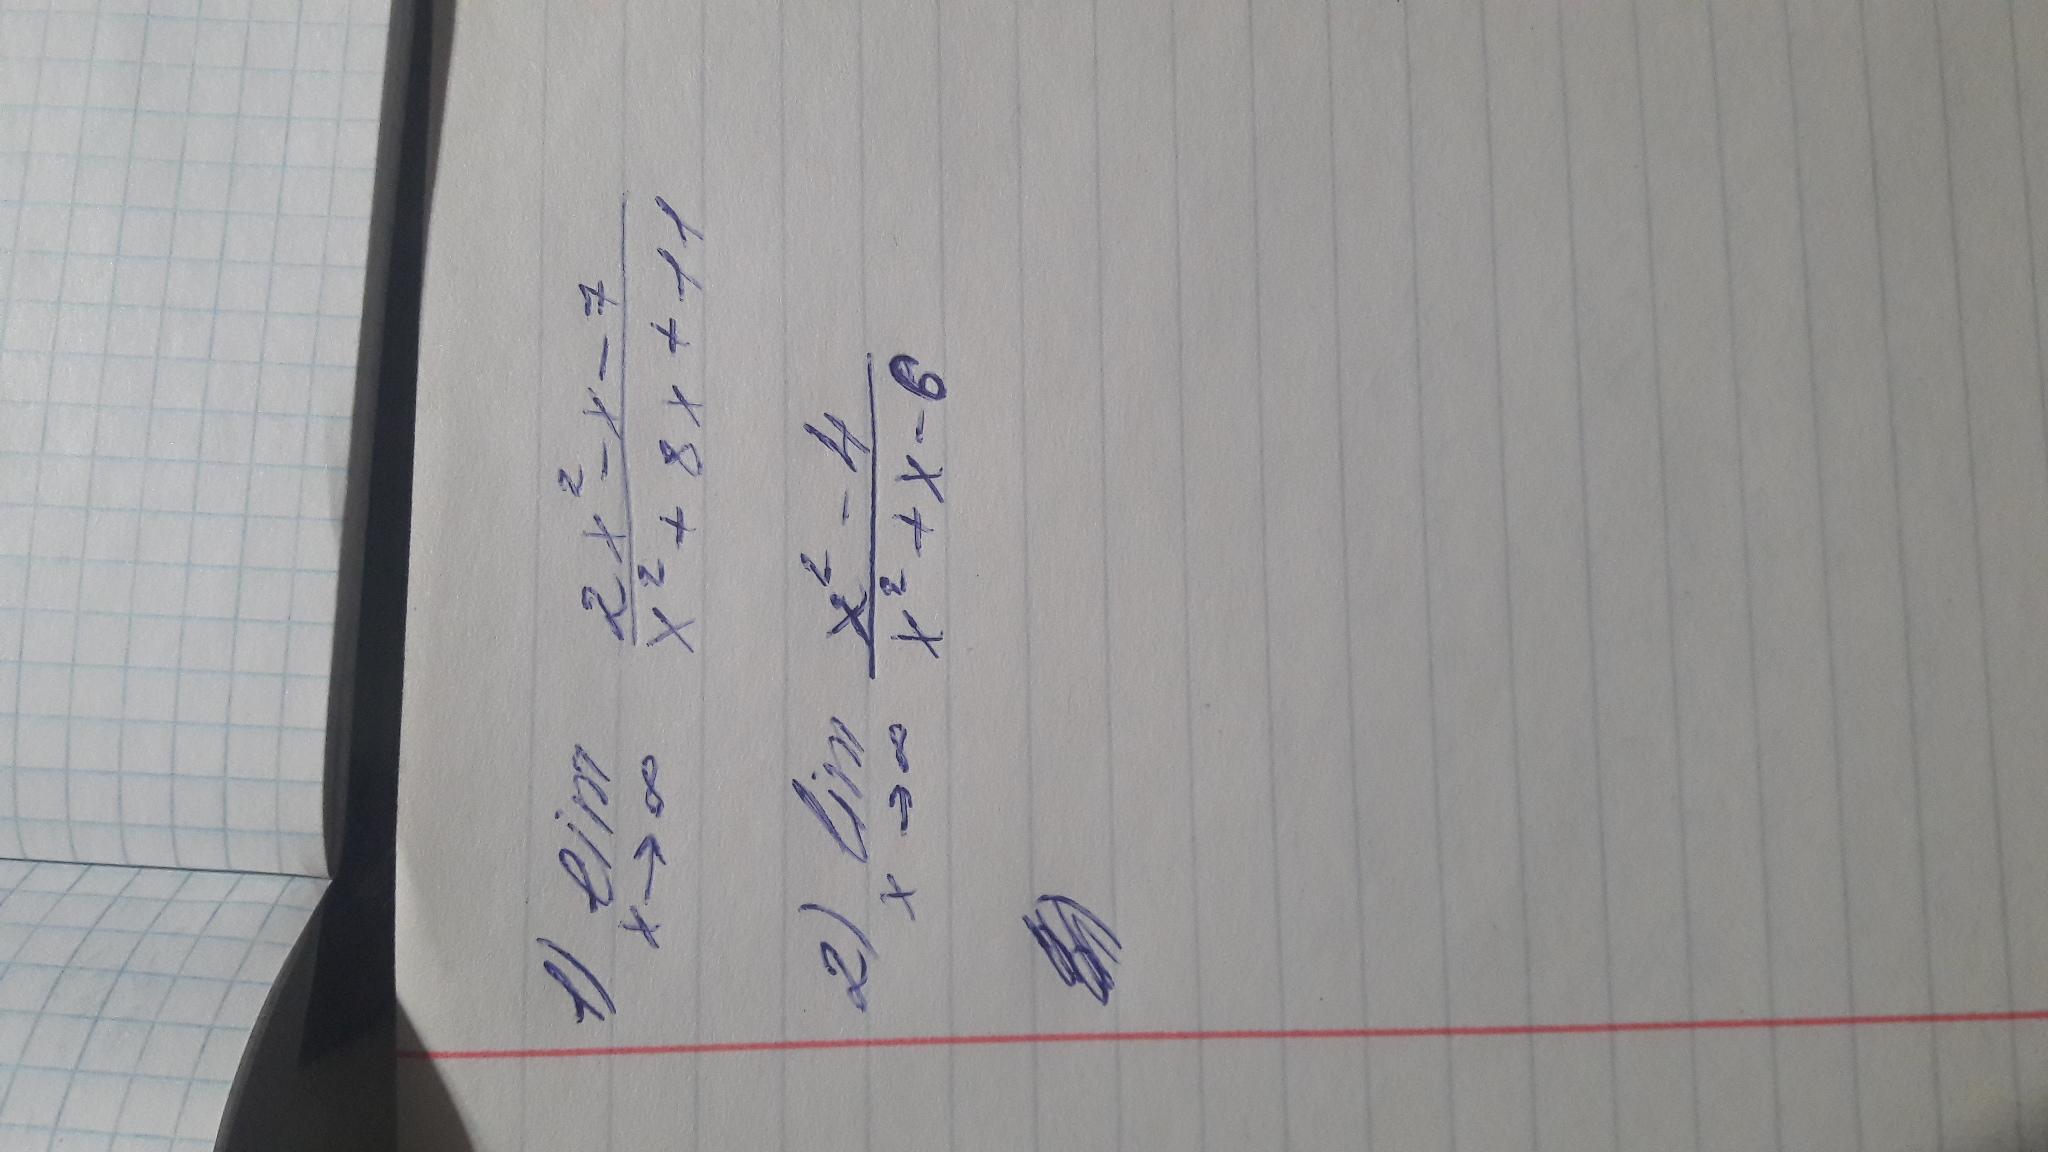 1) lim x→∞ (2x² - x - 7) / (x² + 8x + 11)
2) lim x→∞ (x² - 4) / (x² + x - 6)